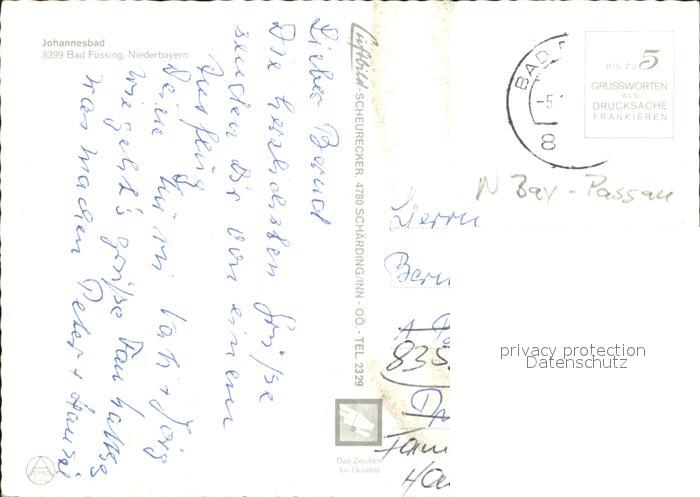 Johannesbad
8399 Bad Füssing, Niederbayern
Lieber Bernd
Die herzlichsten Grüße
senden Dir von einem
Ausflug
Deine
wie geht's Grüße
was machen Peter + Hansi
Luftbild-SCHEURECKER, 4780 SCHÄRDING/INN - OÖ. - TEL. 2329
Das Zeichen
für Qualität
BAD
-5.
8
BIS ZU 5
GRUSSWORTEN
ALS
DRUCKSACHE
FRANKIEREN
N Bay - Passau
Herrn
Bern
835
Fam
privacy protection
Datenschutz